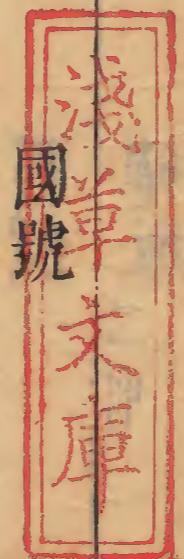 淺草文庫
國號